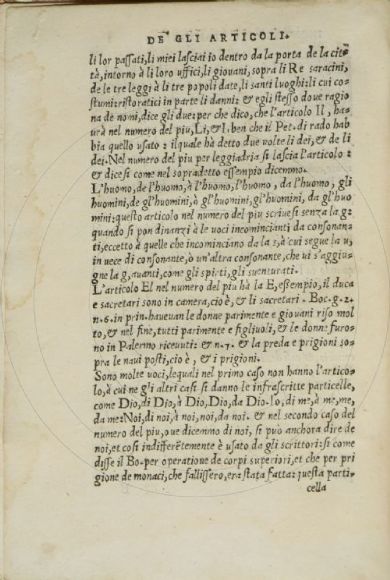 DE GLI ARTICOLI.
li lor passati, li miei lasciai io dentro da la porta de la cit-
tà, intorno à li loro uffici, li giovani, sopra li Re saracini,
de le tre leggi à li tre popoli date, li santi luoghi: li cui co-
stumi: ristorati in parte li danni: & egli stesso due ragio
na de nomi, dice gli due: per che dico, che l'articolo Il, ha-
urà nel numero del piu, Li, & I. ben che il Pet. di rado hab
bia quello usato: ilquale hà detto due volte li dei, & de li
dei. Nel numero del piu per leggiadria si lascia l'articolo:
& dicesi come nel sopradetto essempio dicemmo.
L'huomo, de l'huomo, à l'huomo, l'huomo, da l'huomo, gli
huomini, de gl'huomini, à gl'huomini, gl'huomini, da gl'huo
mini: questo articolo nel numero del piu scriuesi senza la g:
quando si pon dinanzi à le uoci incomincianti da consonan
ti, eccetto à quelle che incominciano da la s, à cui segue la u,
in uece di consonante, ò un'altra consonante, che ui s'aggiu-
gne la g, auanti, come gli spirti, gli suenturati.
L'articolo El nel numero del piu hà la E, essempio, il duca
e sacretari sono in camera, cio è, & li sacretari. Boc. g. 2.
n. 6. in prin. haueuan le donne parimente e giouani riso mol
to, & nel fine, tutti parimente e figliuoli, & le donne furo-
no in Palermo riceuuti: & n. 7. & la preda e prigioni so-
pra le naui posti, cio è, & i prigioni.
Sono molte uoci, lequali nel primo caso non hanno l'artico-
lo, à cui ne gli altri casi si danno le infrascritte particelle,
come Dio, di Dio, à Dio, Dio, da Dio. Io, di me, à me, me,
da me: Noi, di noi, à noi, noi, da noi. & nel secondo caso del
numero del piu, oue dicemmo di noi, si può anchora dire de
noi, et cosi indifferētemente è usato da gli scrittori: si come
disse il Bo. per operatione de corpi superiori, et che per pri
gione de monaci, che fallissero, era stata fatta: questa parti-
cella